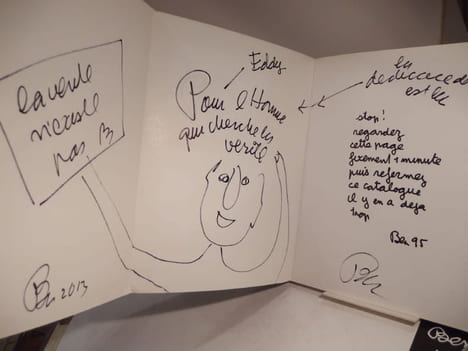 la verité
n'existe
pas B
Ben 2013
Eddy
Pour l'Homme
qui cherche la
verité
la
dedicace
est là
stop!
regardez
cette page
fixement 1 minute
puis refermez
ce catalogue
il y en a deja
trop
Ben 95
Ben
Ben